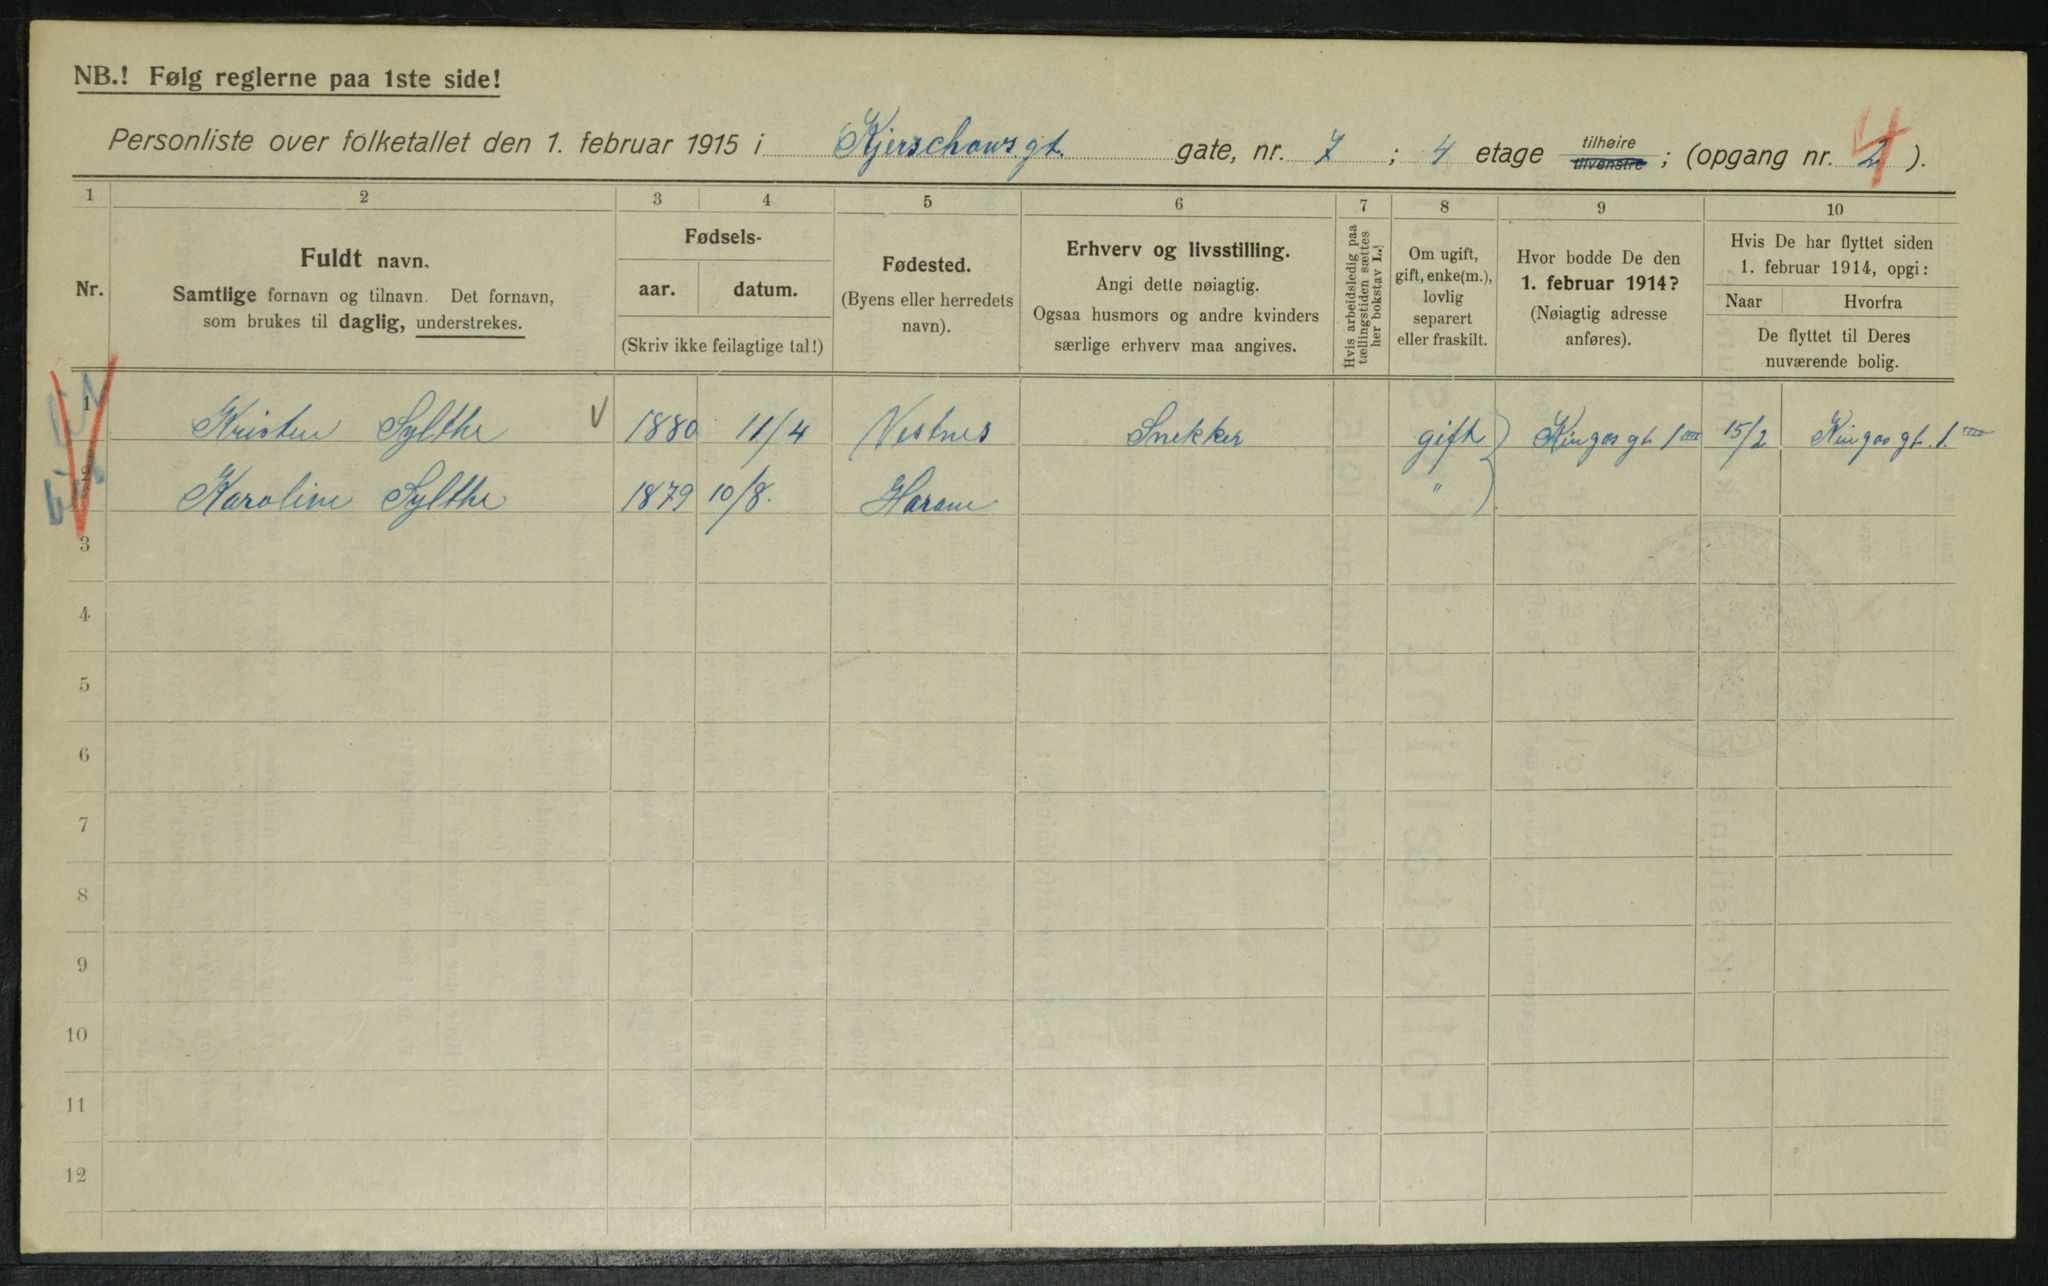 NB.! Følg reglerne paa 1ste side!
Personliste over folketallet den 1. februar 1915 i Kjerschowsgt. gate, nr. 7 ; 4 etage tilhøire tilvenstre ; (opgang nr. 2 ).
4
1 2 3 4 5 6 7 8 9 10
Nr.
Fuldt navn.
Samtlige fornavn og tilnavn. Det fornavn,
som brukes til daglig, understrekes.
Fødsels-
aar. datum.
(Skriv ikke feilagtige tal!)
Fødested.
(Byens eller herredets
navn).
Erhverv og livsstilling.
Angi dette nøiagtig.
Ogsaa husmors og andre kvinders
særlige erhverv maa angives.
Hvis arbeidsledig paa
tællingstiden sættes
her bokstav L.!
Om ugift,
gift, enke(m.),
lovlig
separert
eller fraskilt.
Hvor bodde De den
1. februar 1914?
(Nøiagtig adresse
anføres).
Hvis De har flyttet siden
1. februar 1914, opgi:
Naar Hvorfra
De flyttet til Deres
nuværende bolig.
1 Kristen Sylthe 1880 11/4 Vestnes Snekker gift Kingos gt 1 III 15/2 Kingos gt. 1. III
2 Karoline Sylthe 1879 10/8. Haram "
3
4
5
6
7
8
9
10
11
12